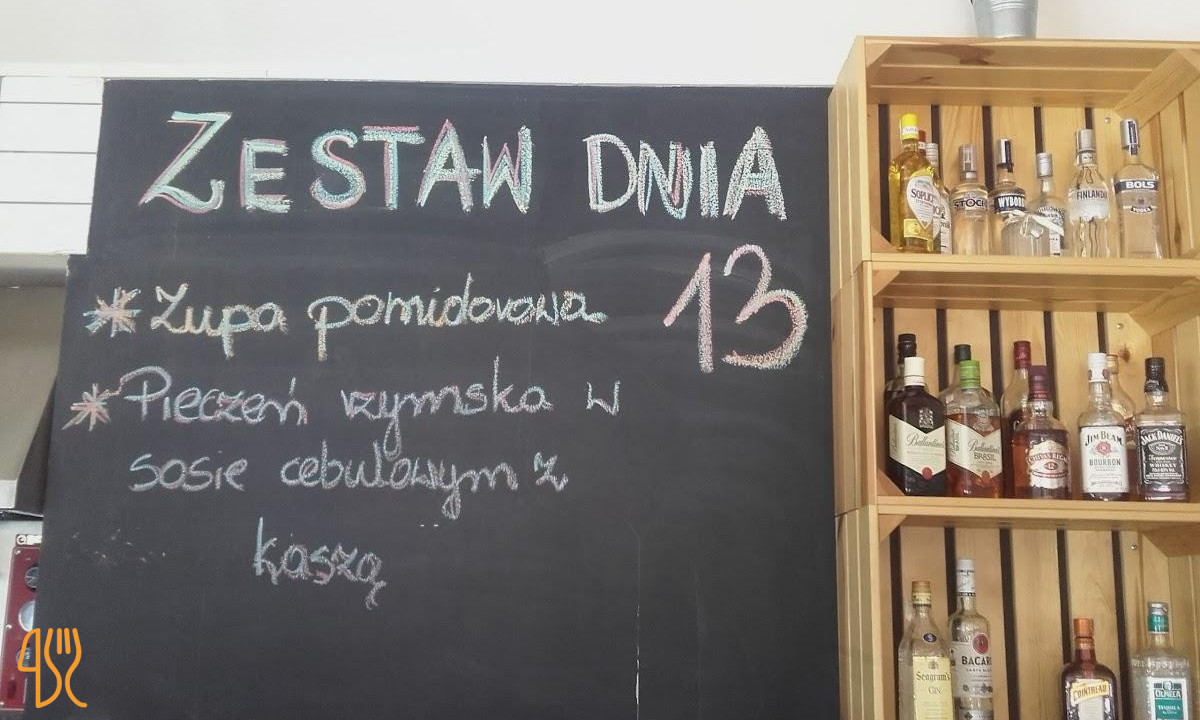 ZESTAW DNIA
13
* Zupa pomidorowa
* Pieczeń rzymska w
sosie cebulowym z
kaszą
SOPLICA
STOCK
WYBOROWA
FINLANDIA
BOLS
VODKA
Ballantine's
Ballantine's
BRASIL
JIM BEAM
BOURBON
JACK DANIEL'S
Tennessee
WHISKEY
Seagram's
GIN
BACARDI
COINTREAU
OLMECA
TEQUILA